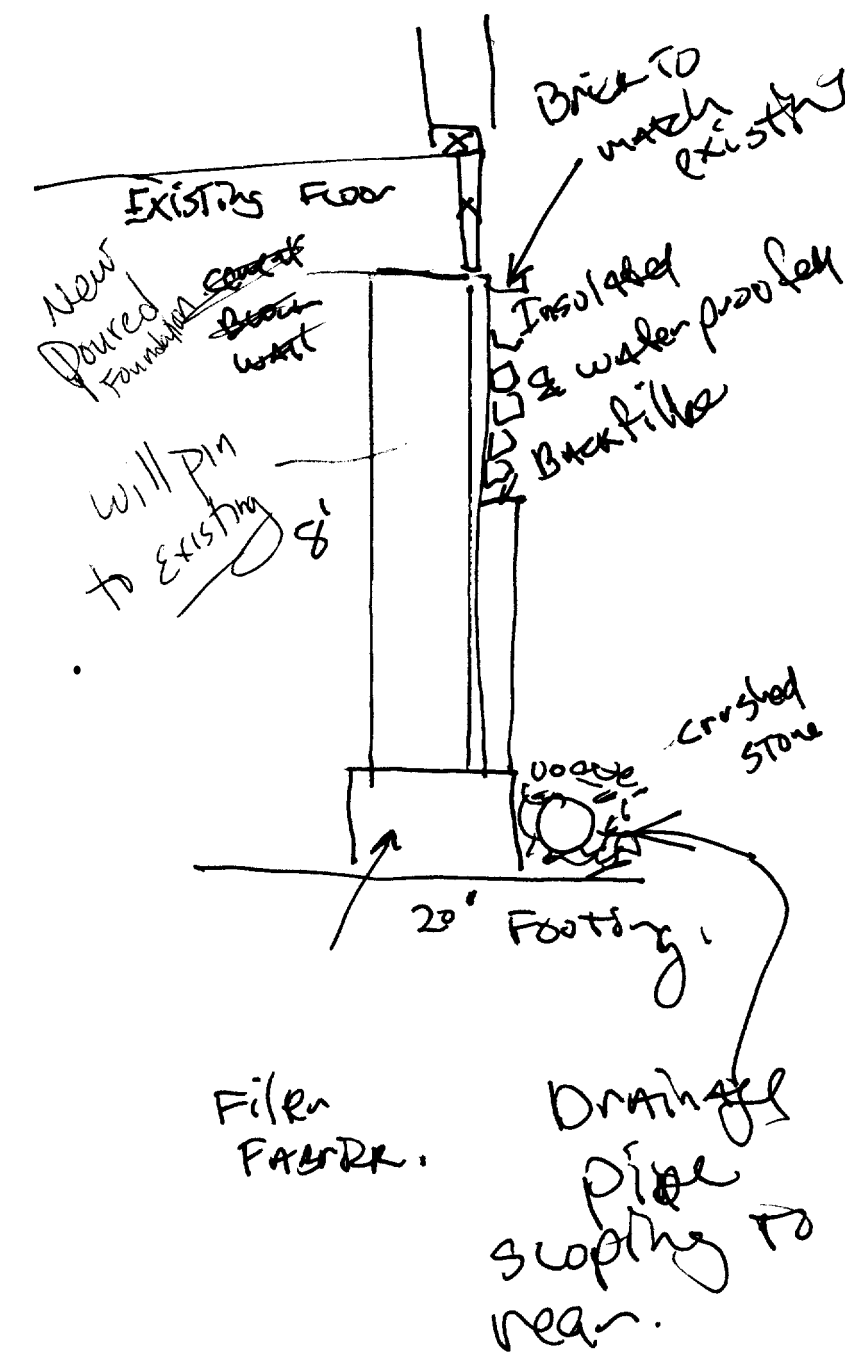 Brick To
match
existing
Existing Floor
New
Poured
Foundation
Block
Wall
Insulated
& waterproofed
Backfilled
will pin
to Existing
8'
crushed
stone
20" Footing.
Filter
Fabric.
Drainage
pipe
sloping to
rear.